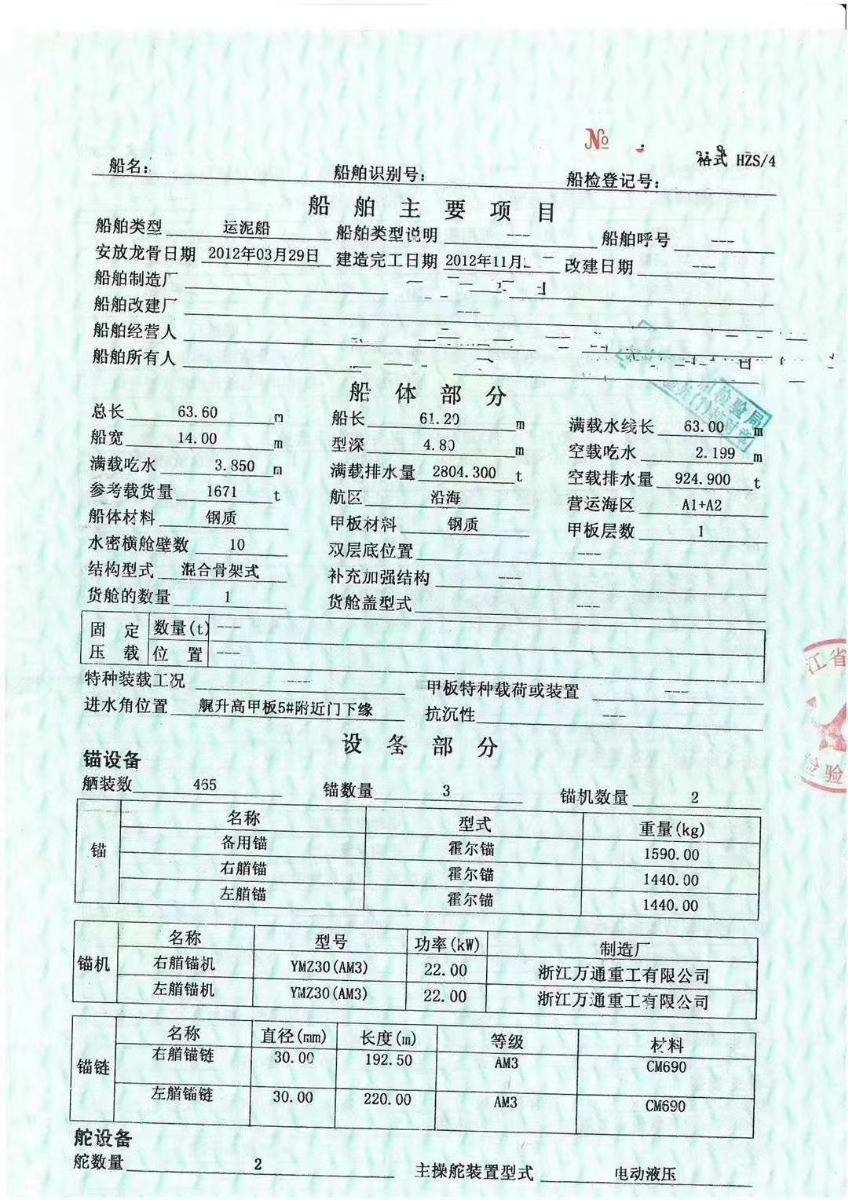 №
格式 HZS/4
船名: 船舶识别号: 船检登记号:
船舶主要项目
船舶类型 运泥船 船舶类型说明 --- 船舶呼号 ---
安放龙骨日期 2012年03月29日 建造完工日期 2012年11月 改建日期 ---
船舶制造厂
船舶改建厂 ---
船舶经营人
船舶所有人
检验局
船体部分
总长 63.60 m 船长 61.20 m 满载水线长 63.00 m
船宽 14.00 m 型深 4.80 m 空载吃水 2.199 m
满载吃水 3.850 m 满载排水量 2804.300 t 空载排水量 924.900 t
参考载货量 1671 t 航区 沿海 营运海区 A1+A2
船体材料 钢质 甲板材料 钢质 甲板层数 1
水密横舱壁数 10 双层底位置 ---
结构型式 混合骨架式 补充加强结构 ---
货舱的数量 1 货舱盖型式 ---
固定 数量(t) ---
压载 位置 ---
特种装载工况 --- 甲板特种载荷或装置 ---
进水角位置 艉升高甲板5#附近门下缘 抗沉性 ---
江省
检验
设备部分
锚设备
舾装数 465 锚数量 3 锚机数量 2
名称 型式 重量(kg)
锚 备用锚 霍尔锚 1590.00
右艏锚 霍尔锚 1440.00
左艏锚 霍尔锚 1440.00
名称 型号 功率(kW) 制造厂
锚机 右艏锚机 YMZ30(AM3) 22.00 浙江万通重工有限公司
左艏锚机 YMZ30(AM3) 22.00 浙江万通重工有限公司
名称 直径(mm) 长度(m) 等级 材料
锚链 右艏锚链 30.00 192.50 AM3 CM690
左艏锚链 30.00 220.00 AM3 CM690
舵设备
舵数量 2 主操舵装置型式 电动液压